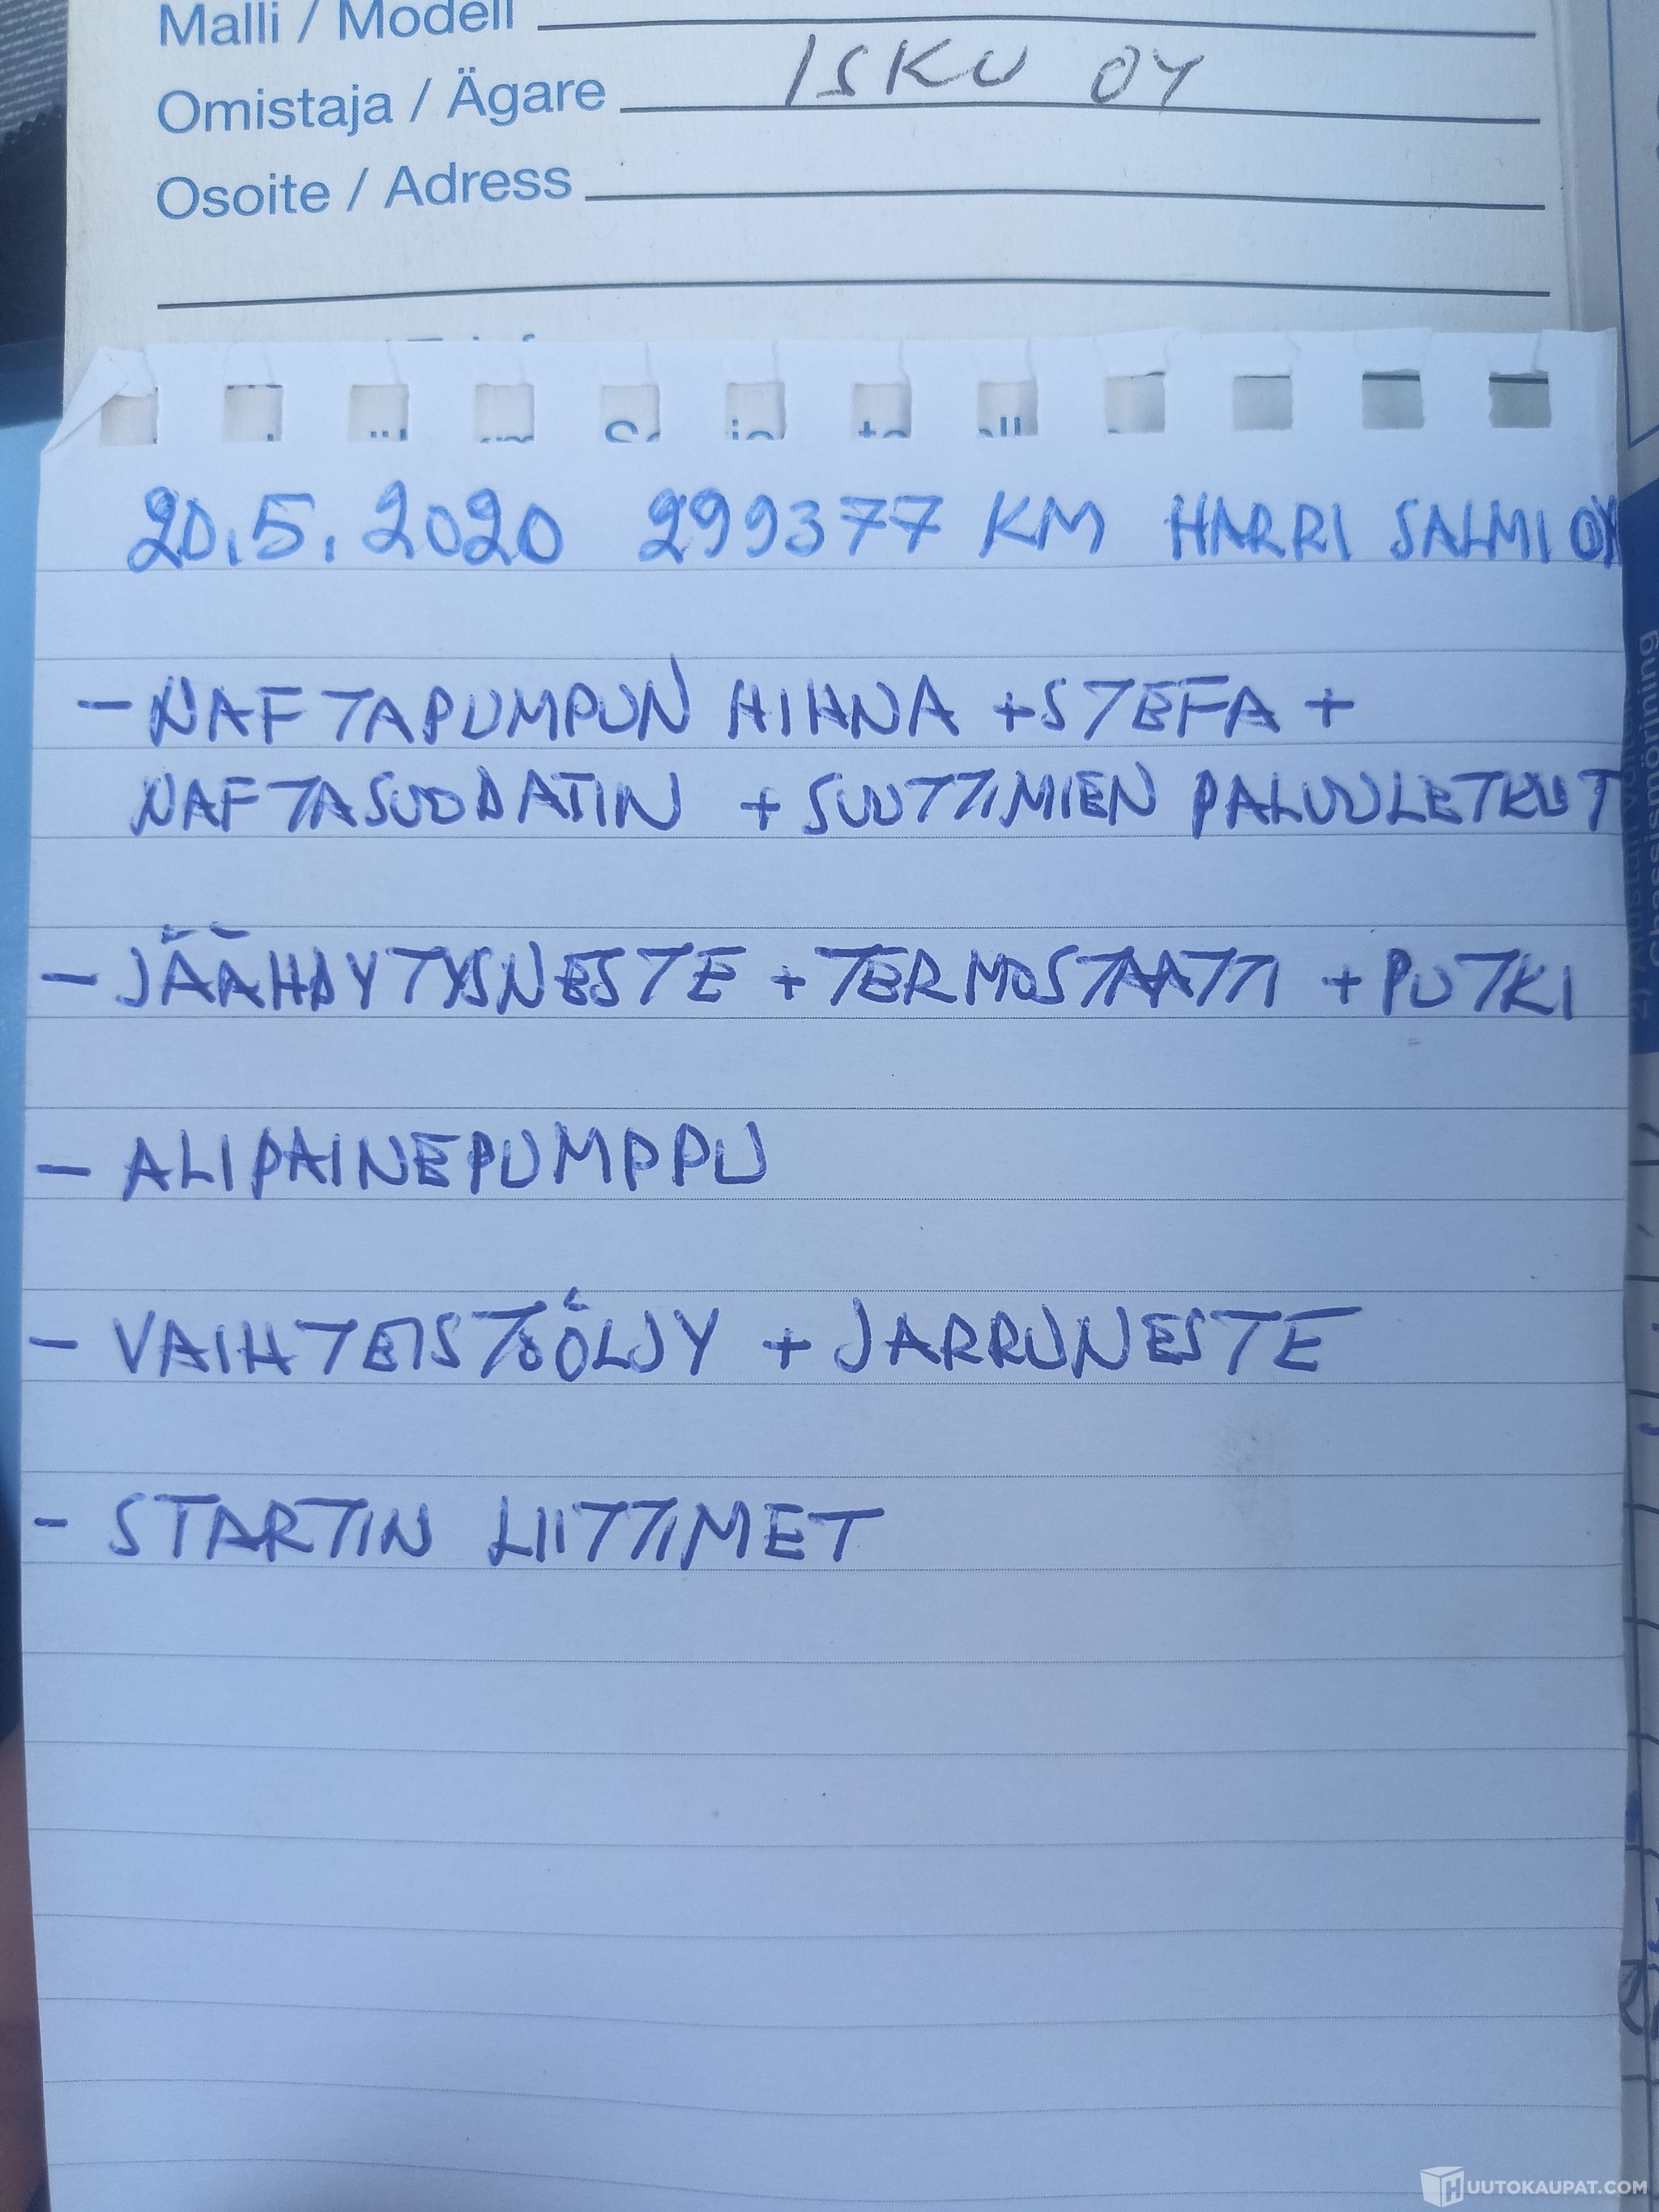 Malli / Modell
Omistaja / Ägare ISKU OY
Osoite / Adress
20.5.2020 299377 KM HARRI SALMI OY
- NAFTAPUMPUN HIHNA + STEFA +
NAFTASUODATIN + SUUTTIMIEN PALUULETKUT
- JÄÄHDYTYSNESTE + TERMOSTAATTI + PUTKI
- ALIPAINEPUMPPU
- VAIHTEISTOÖLJY + JARRUNESTE
- STARTIN LIITTIMET
Chassismörining
HUUTOKAUPAT.COM